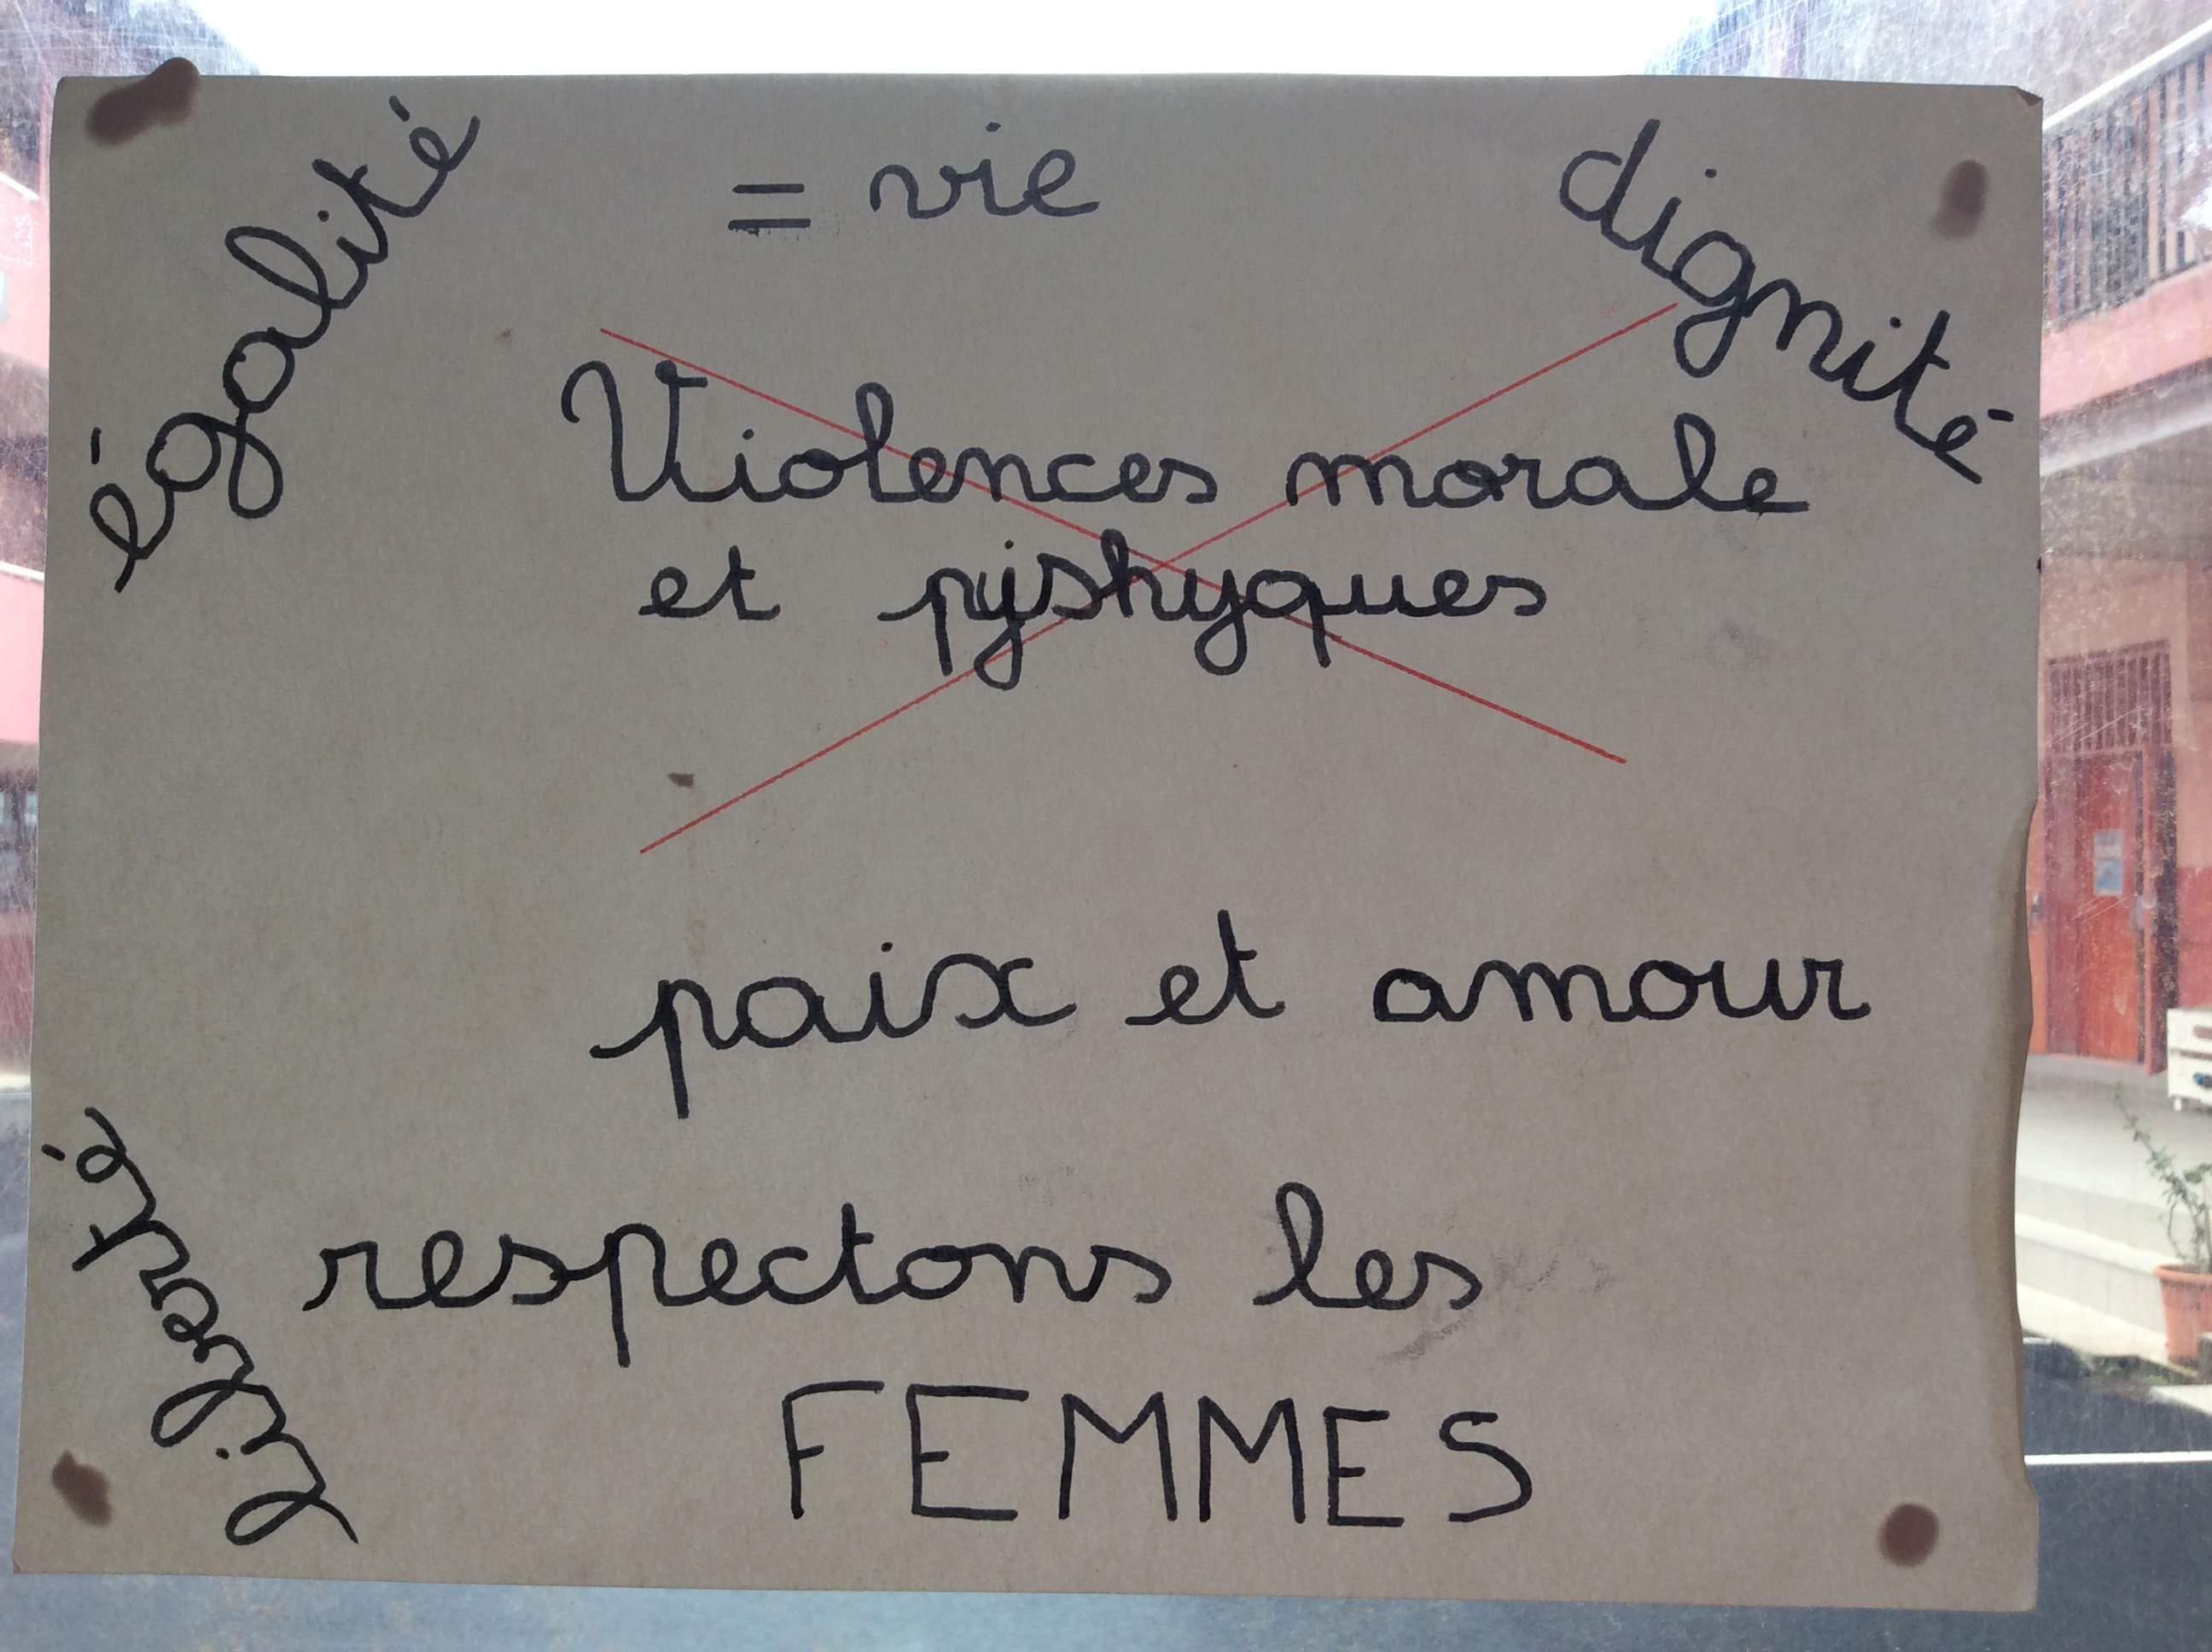 égalité
= vie
dignité
Violences morale
et pyshyques
paix et amour
liberté
respectons les
FEMMES